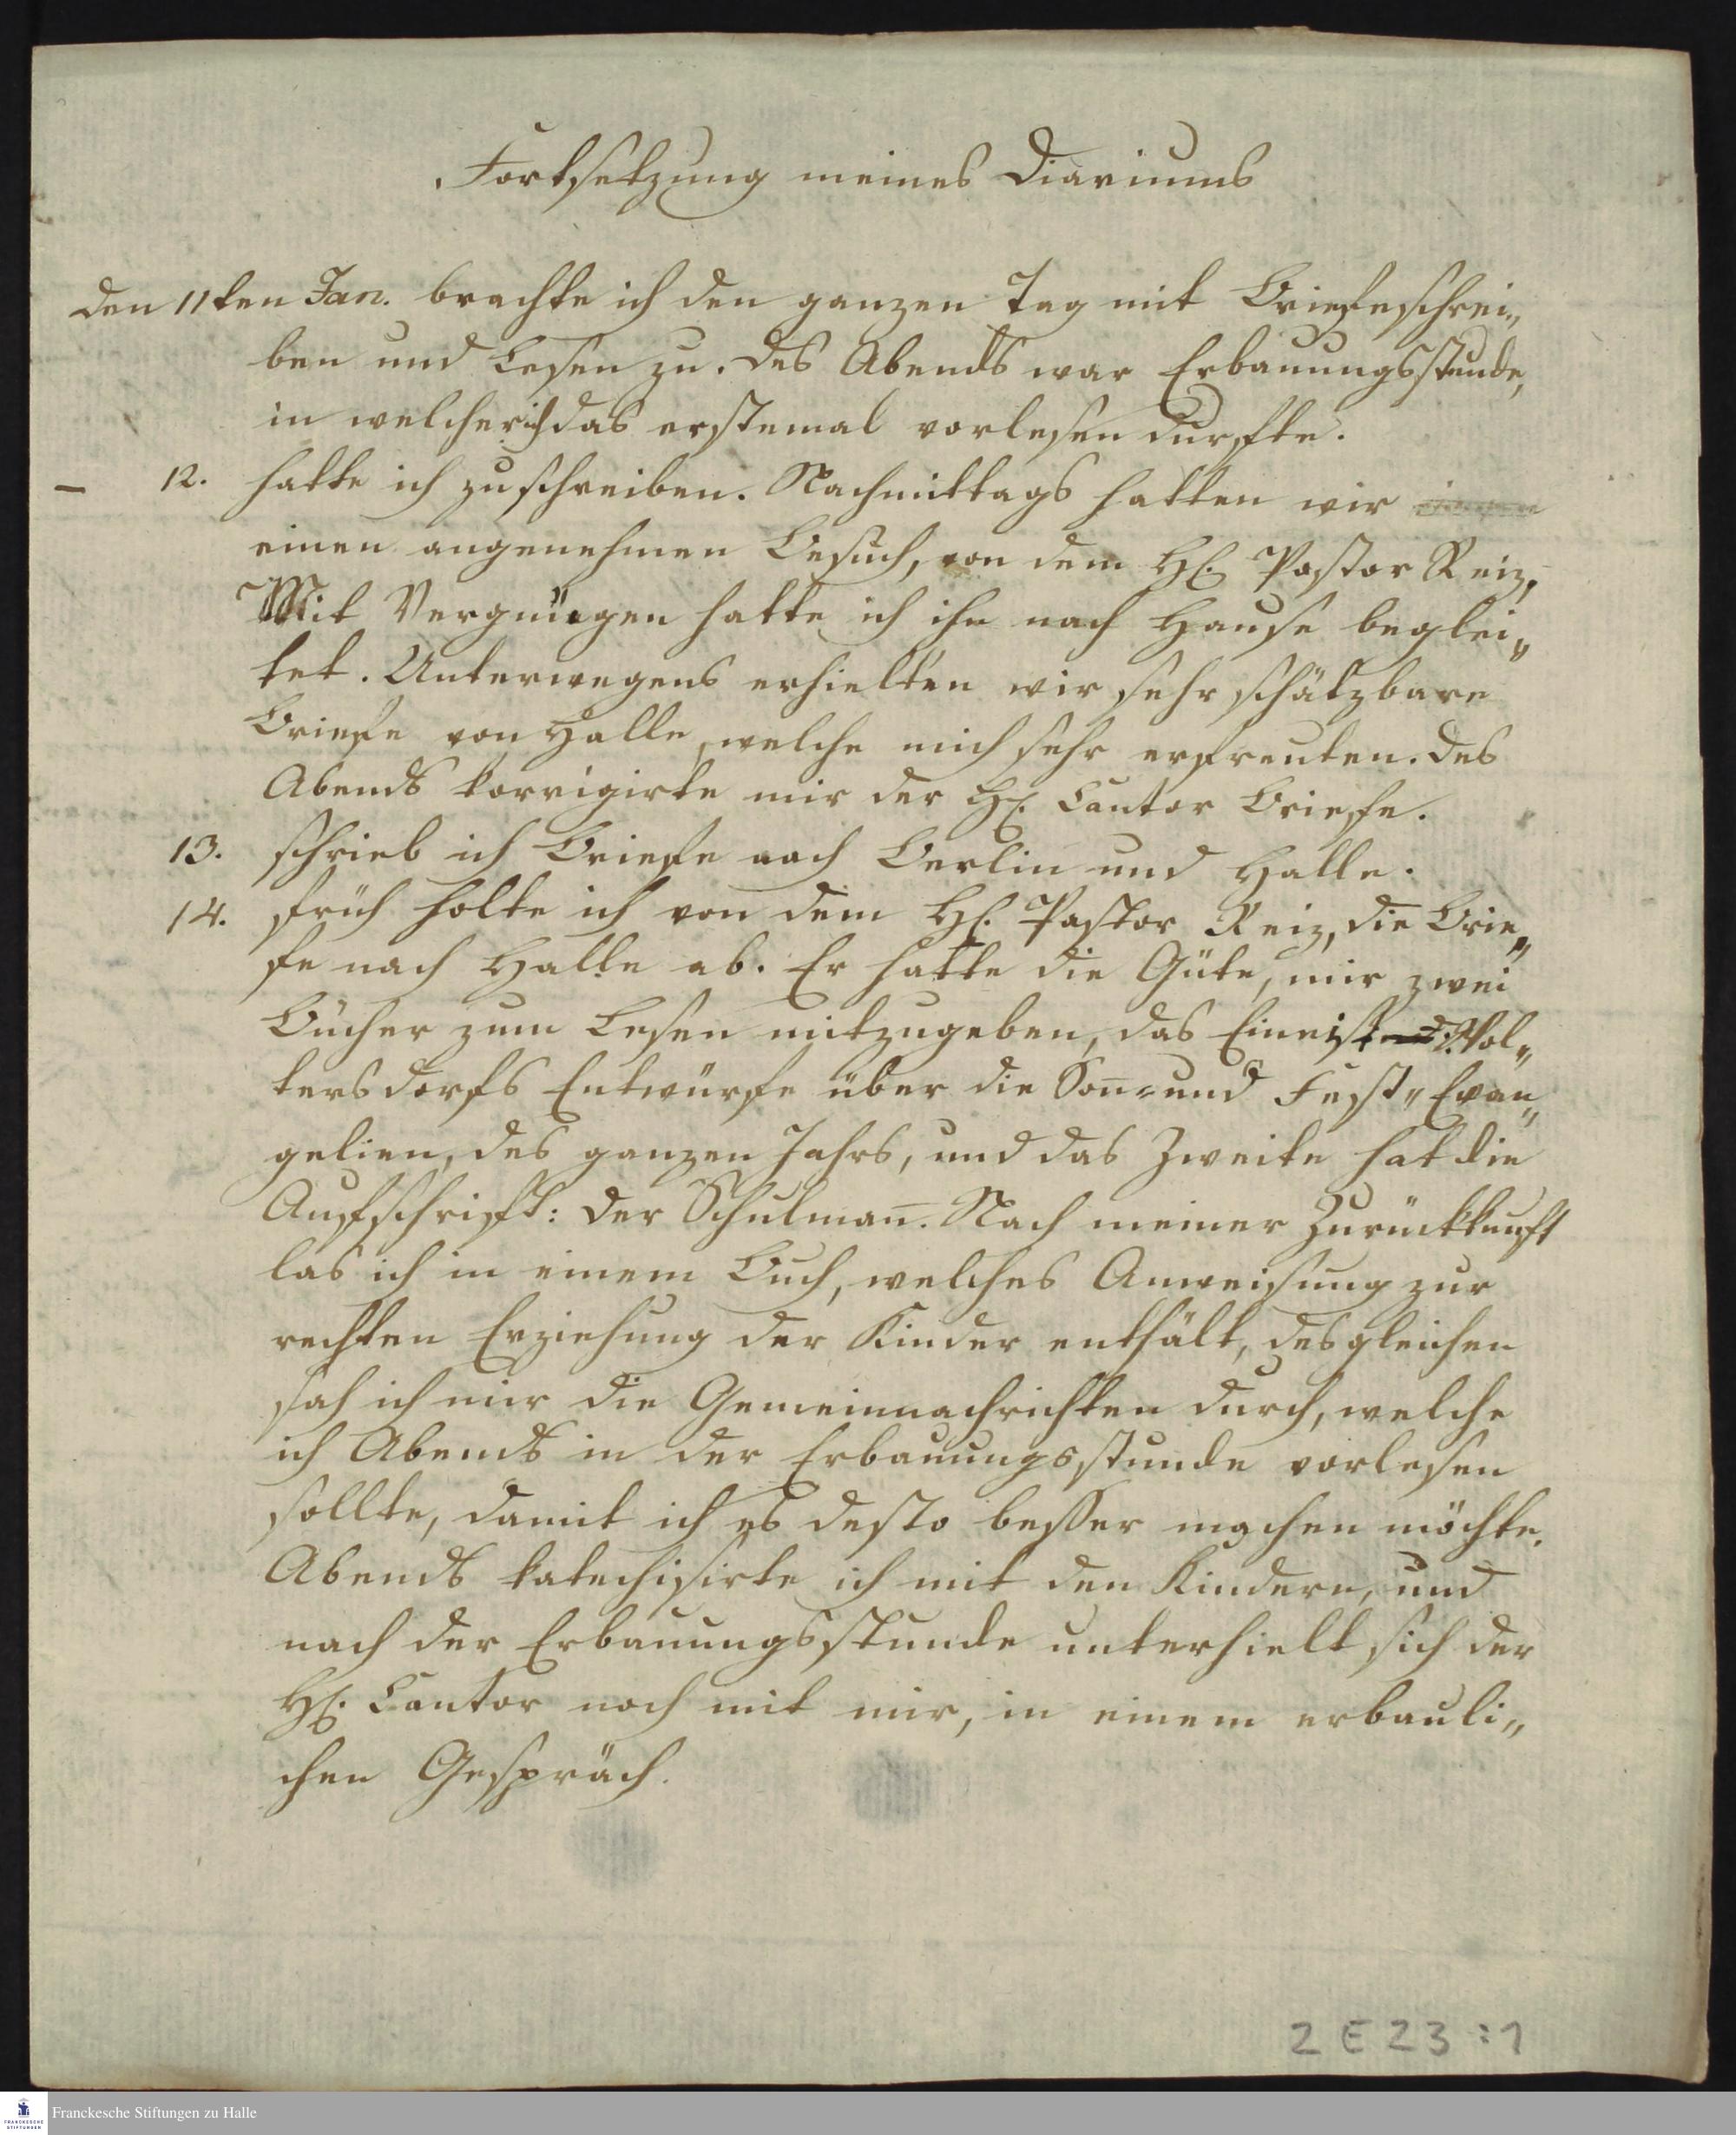 Fortsetzung meines Diariums
den 11ten Jan. brachte ich den ganzen Tag mit Briefeschrei„
ben und Lesen zu. des Abends war Erbauungsstunde,
in welcher ich das erstemal vorlesen durfte.
– 12. hatte ich zu schreiben. Nachmittags hatten wir
einen angenehmen Besuch, von dem H. Pastor Reiz,
Mit Vergnügen hatte ich ihn nach Hause beglei„
tet. Unterwegens erhielten wir sehr schätzbare
Briefe von Halle, welche mich sehr erfreuten. des
Abends korrigirte mir der H. Cantor Briefe.
13. schrieb ich Briefe nach Berlin und Halle.
14. früh holte ich von dem H. Pastor Reiz, die Brie„
fe nach Halle ab. Er hatte die Güte, mir zwei
Bücher zum Lesen mitzugeben, das Eine ist Wol„
tersdorfs Entwürfe über die Son- und Fest„ Evan„
gelien, des ganzen Jahrs, und das Zweite hat die
Aufschrift: der Schulman̅. Nach meiner Zurückkunft
las ich in einem Buch, welches Anweisung zur
rechten Erziehung der Kinder enthält, desgleichen
sah ich mir die Gemeinnachrichten durch, welche
ich Abends in der Erbauungsstunde vorlesen
sollte, damit ich es desto besser machen möchte.
Abends katechisirte ich mit den Kindern, und
nach der Erbauungsstunde unterhielt sich der
H. Cantor noch mit mir, in einem erbauli„
chen Gespräch.
2 E 23 : 1
FRANCKESCHE STIFTUNGEN
Franckesche Stiftungen zu Halle